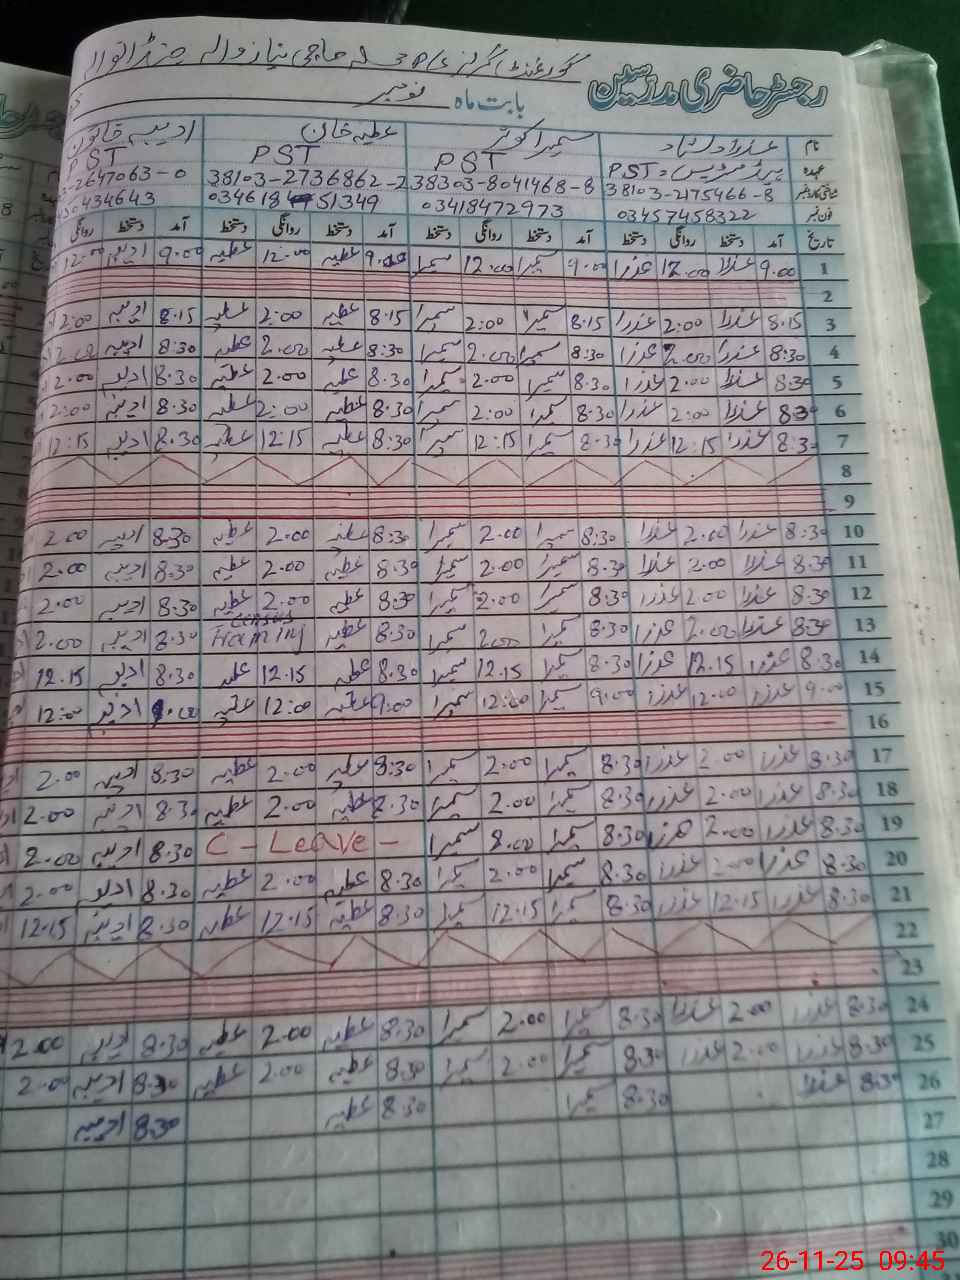 رجسٹر حاضری مدرسین گورنمنٹ گرلز P/S حاجی نیاز والہ
بابت ماہ نومبر
نام عذرا دلشاد سمیرا کوثر عطیہ خان ادیبہ خاتون
عہدہ PST PST PST PST
شناختی کارڈ نمبر 38103-2175466-8 38303-8041468-8 38103-2736862-2 3-2647063-0
فون نمبر 03457458322 03418472973 51349 430434643
تاریخ آمد دستخط روانگی دستخط آمد دستخط روانگی دستخط آمد دستخط روانگی دستخط آمد دستخط روانگی
1 9.00 عذرا 12.00 عذرا 9.00 سمیرا 12.00 سمیرا 9.00 عطیہ 12.00 عطیہ 9.00 ادیبہ 12.00
2
3 8.15 عذرا 2:00 عذرا 8.15 سمیرا 2:00 سمیرا 8.15 عطیہ 2:00 عطیہ 8.15 ادیبہ 2:00
4 8:30 عذرا 2.00 عذرا 8:30 سمیرا 2.00 سمیرا 8:30 عطیہ 2.00 عطیہ 8:30 ادیبہ 2.00
5 8.30 عذرا 2.00 عذرا 8.30 سمیرا 2.00 سمیرا 8.30 عطیہ 2.00 عطیہ 8.30 ادیبہ 2.00
6 8.30 عذرا 2:00 عذرا 8.30 سمیرا 2:00 سمیرا 8.30 عطیہ 2:00 عطیہ 8.30 ادیبہ 2:00
7 8:30 عذرا 12.15 عذرا 8.30 سمیرا 12:15 سمیرا 8:30 عطیہ 12:15 عطیہ 8.30 ادیبہ 12:15
8
9
10 8.30 عذرا 2.00 عذرا 8:30 سمیرا 2.00 سمیرا 8:30 عطیہ 2.00 عطیہ 8.30 ادیبہ 2.00
11 8.30 عذرا 2.00 عذرا 8.30 سمیرا 2.00 سمیرا 8.30 عطیہ 2.00 عطیہ 8.30 ادیبہ 2.00
12 8.30 عذرا 2.00 عذرا 8.30 سمیرا 2.00 سمیرا 8.30 عطیہ 2.00 عطیہ 8.30 ادیبہ 2.00
13 8.30 عذرا 2.00 عذرا 8.30 سمیرا 2.00 سمیرا 8.30 عطیہ 8.30 ادیبہ 2.00
14 8.30 عذرا 12.15 عذرا 8.30 سمیرا 12.15 سمیرا 8.30 عطیہ 12.15 عطیہ 8.30 ادیبہ 12.15
15 9.00 عذرا 12.00 عذرا 9.00 سمیرا 12:00 سمیرا 9:00 عطیہ 12:00 عطیہ 9.00 ادیبہ 12:00
16
17 8.30 عذرا 2.00 عذرا 8.30 سمیرا 2.00 سمیرا 8:30 عطیہ 2.00 عطیہ 8.30 ادیبہ 2.00
18 8.30 عذرا 2.00 عذرا 8.30 سمیرا 2.00 سمیرا 8.30 عطیہ 2.00 عطیہ 8.30 ادیبہ 2.00
19 8.30 عذرا 2.00 عذرا 8.30 سمیرا 8.00 سمیرا C - Leave - 8.30 ادیبہ 2.00
20 8.30 عذرا 2.00 عذرا 8.30 سمیرا 2.00 سمیرا 8.30 عطیہ 2.00 عطیہ 8.30 ادیبہ 2.00
21 8.30 عذرا 12.15 عذرا 8.30 سمیرا 12.15 سمیرا 8.30 عطیہ 12.15 عطیہ 8.30 ادیبہ 12.15
22
23
24 8.30 عذرا 2.00 عذرا 8.30 سمیرا 2.00 سمیرا 8.30 عطیہ 2.00 عطیہ 8.30 ادیبہ 2.00
25 8.30 عذرا 2.00 عذرا 8.30 سمیرا 2.00 سمیرا 8.30 عطیہ 2.00 عطیہ 8.30 ادیبہ 2.00
26 8.30 عذرا 8.30 سمیرا 8.30 عطیہ 8.30 ادیبہ
27
28
29
30
26-11-25 09:45